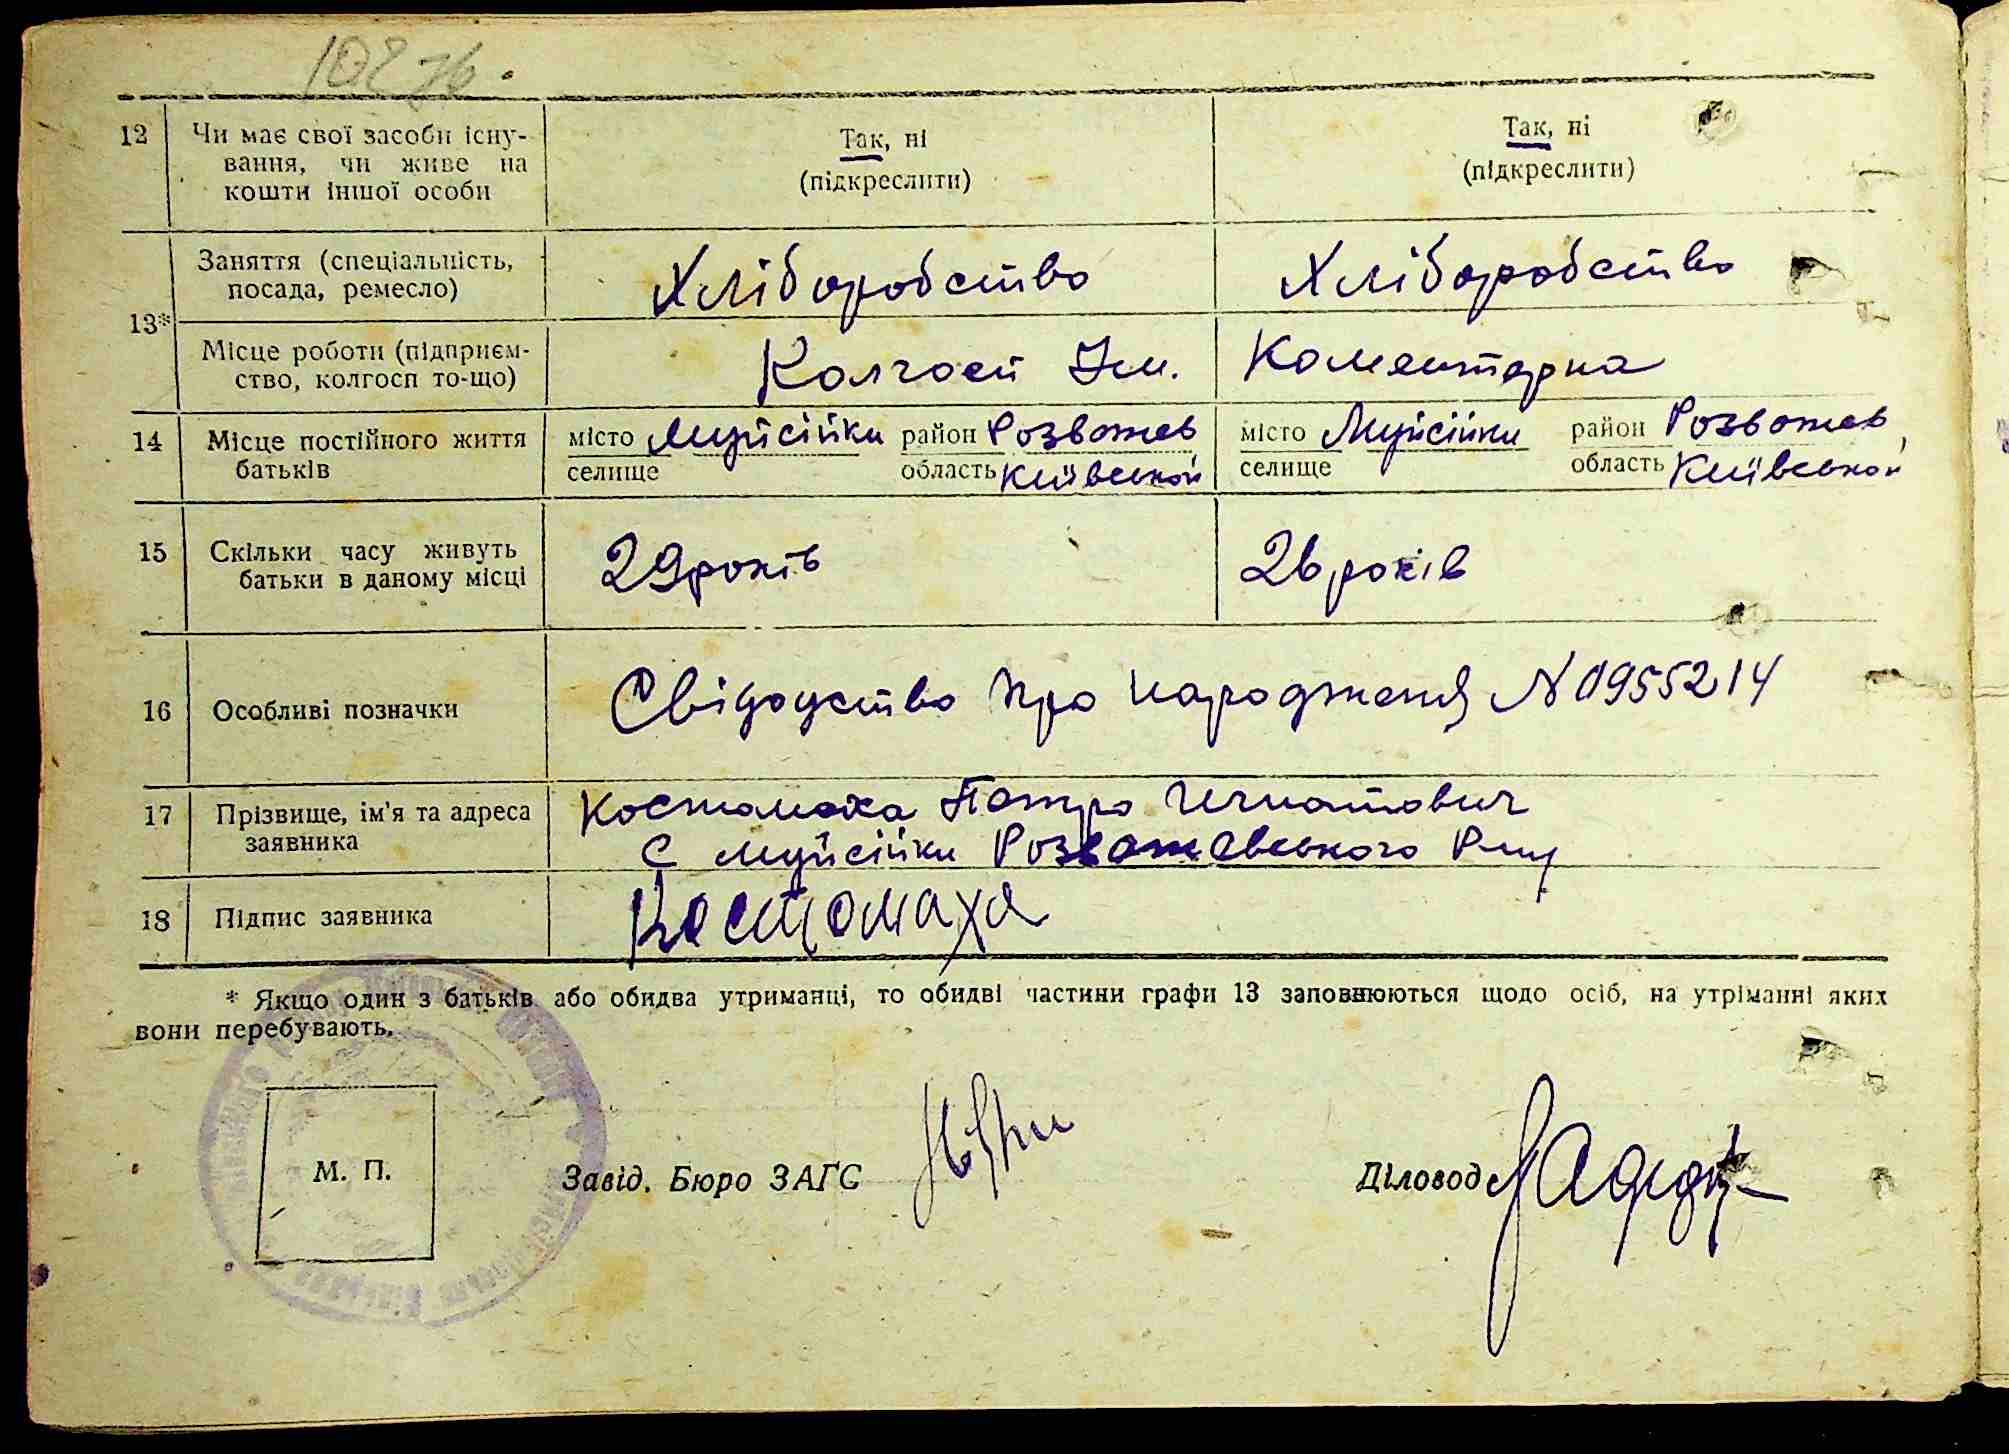 12
Чи має свої засоби існу-
вання, чи живе на
кошти іншої особи
Так, ні
(підкреслити)
Так, ні
(підкреслити)
13*
Заняття (спеціальність,
посада, ремесло)
Хліборобство
Хліборобство
Місце роботи (підприєм-
ство, колгосп то-що)
Колгосп Ім.
Коментерна
14
Місце постійного життя
батьків
місто Мусійки район Розважев
селище область Київської
місто Мусійки район Розважев
селище область Київської
15
Скільки часу живуть
батьки в даному місці
29 років
26 років
16
Особливі позначки
Свідоцтво про народженя N 0955214
17
Прізвище, ім'я та адреса
заявника
Костомаха Петро Игнатович
с Муйсійки Розважевського Р-ну
18
Підпис заявника
Костомаха
* Якщо один з батьків або обидва утриманці, то обидві частини графи 13 заповнюються щодо осіб, на утріманні яких
вони перебувають.
М. П.
Завід. Бюро ЗАГС
Діловод